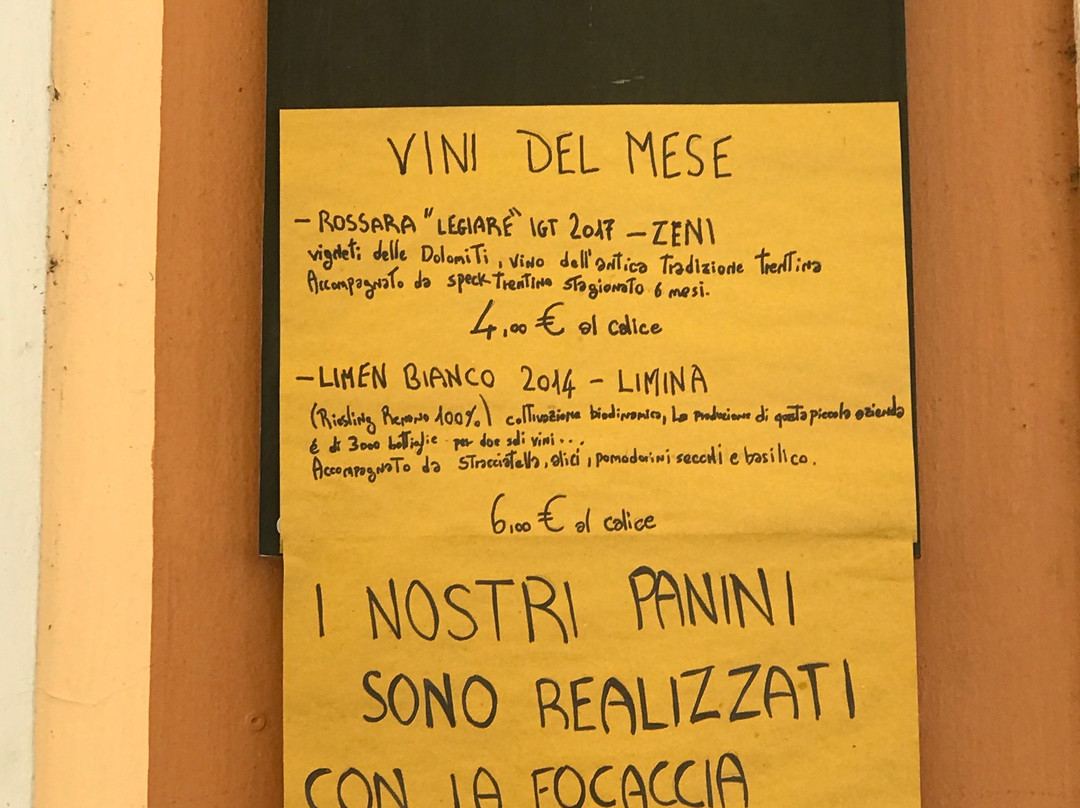 VINI DEL MESE
- ROSSARA "LEGIARE" IGT 2017 - ZENI
vigneti delle Dolomiti, vino dell'antica Tradizione trentina
Accompagnato da speck trentino stagionato 6 mesi.
4,00 € al calice
- LIMEN BIANCO 2014 - LIMINA
(Riesling Renano 100%) coltivazione biodinamica, La produzione di questa piccola azienda
é di 3000 bottiglie per due soli vini...
Accompagnato da stracciatella, alici, pomodorini secchi e basilico.
6,00 € al calice
I NOSTRI PANINI
SONO REALIZZATI
CON LA FOCACCIA